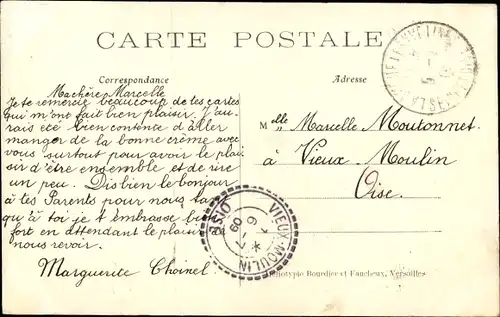 CARTE POSTALE
Correspondance
Adresse
Machère Marcelle
Je te remercie beaucoup de tes cartes
qui m'ont fait bien plaisir. J'au-
rais été bien contente d'aller
manger de la bonne crème avec
vous surtout pour avoir le plai
sir d'être ensemble et de rire
un peu. Dis bien le bonjour
à tes Parents pour nous
qu'à toi je t'embrasse bien
fort en attendant le plaisir
nous revoir.
Marguerite Choinel
Melle Marcelle Moutonnet
à Vieux Moulin
Oise
VIEUX-MOULIN
OISE
6 - 7
09
Bourdier et Faucheux, Versailles